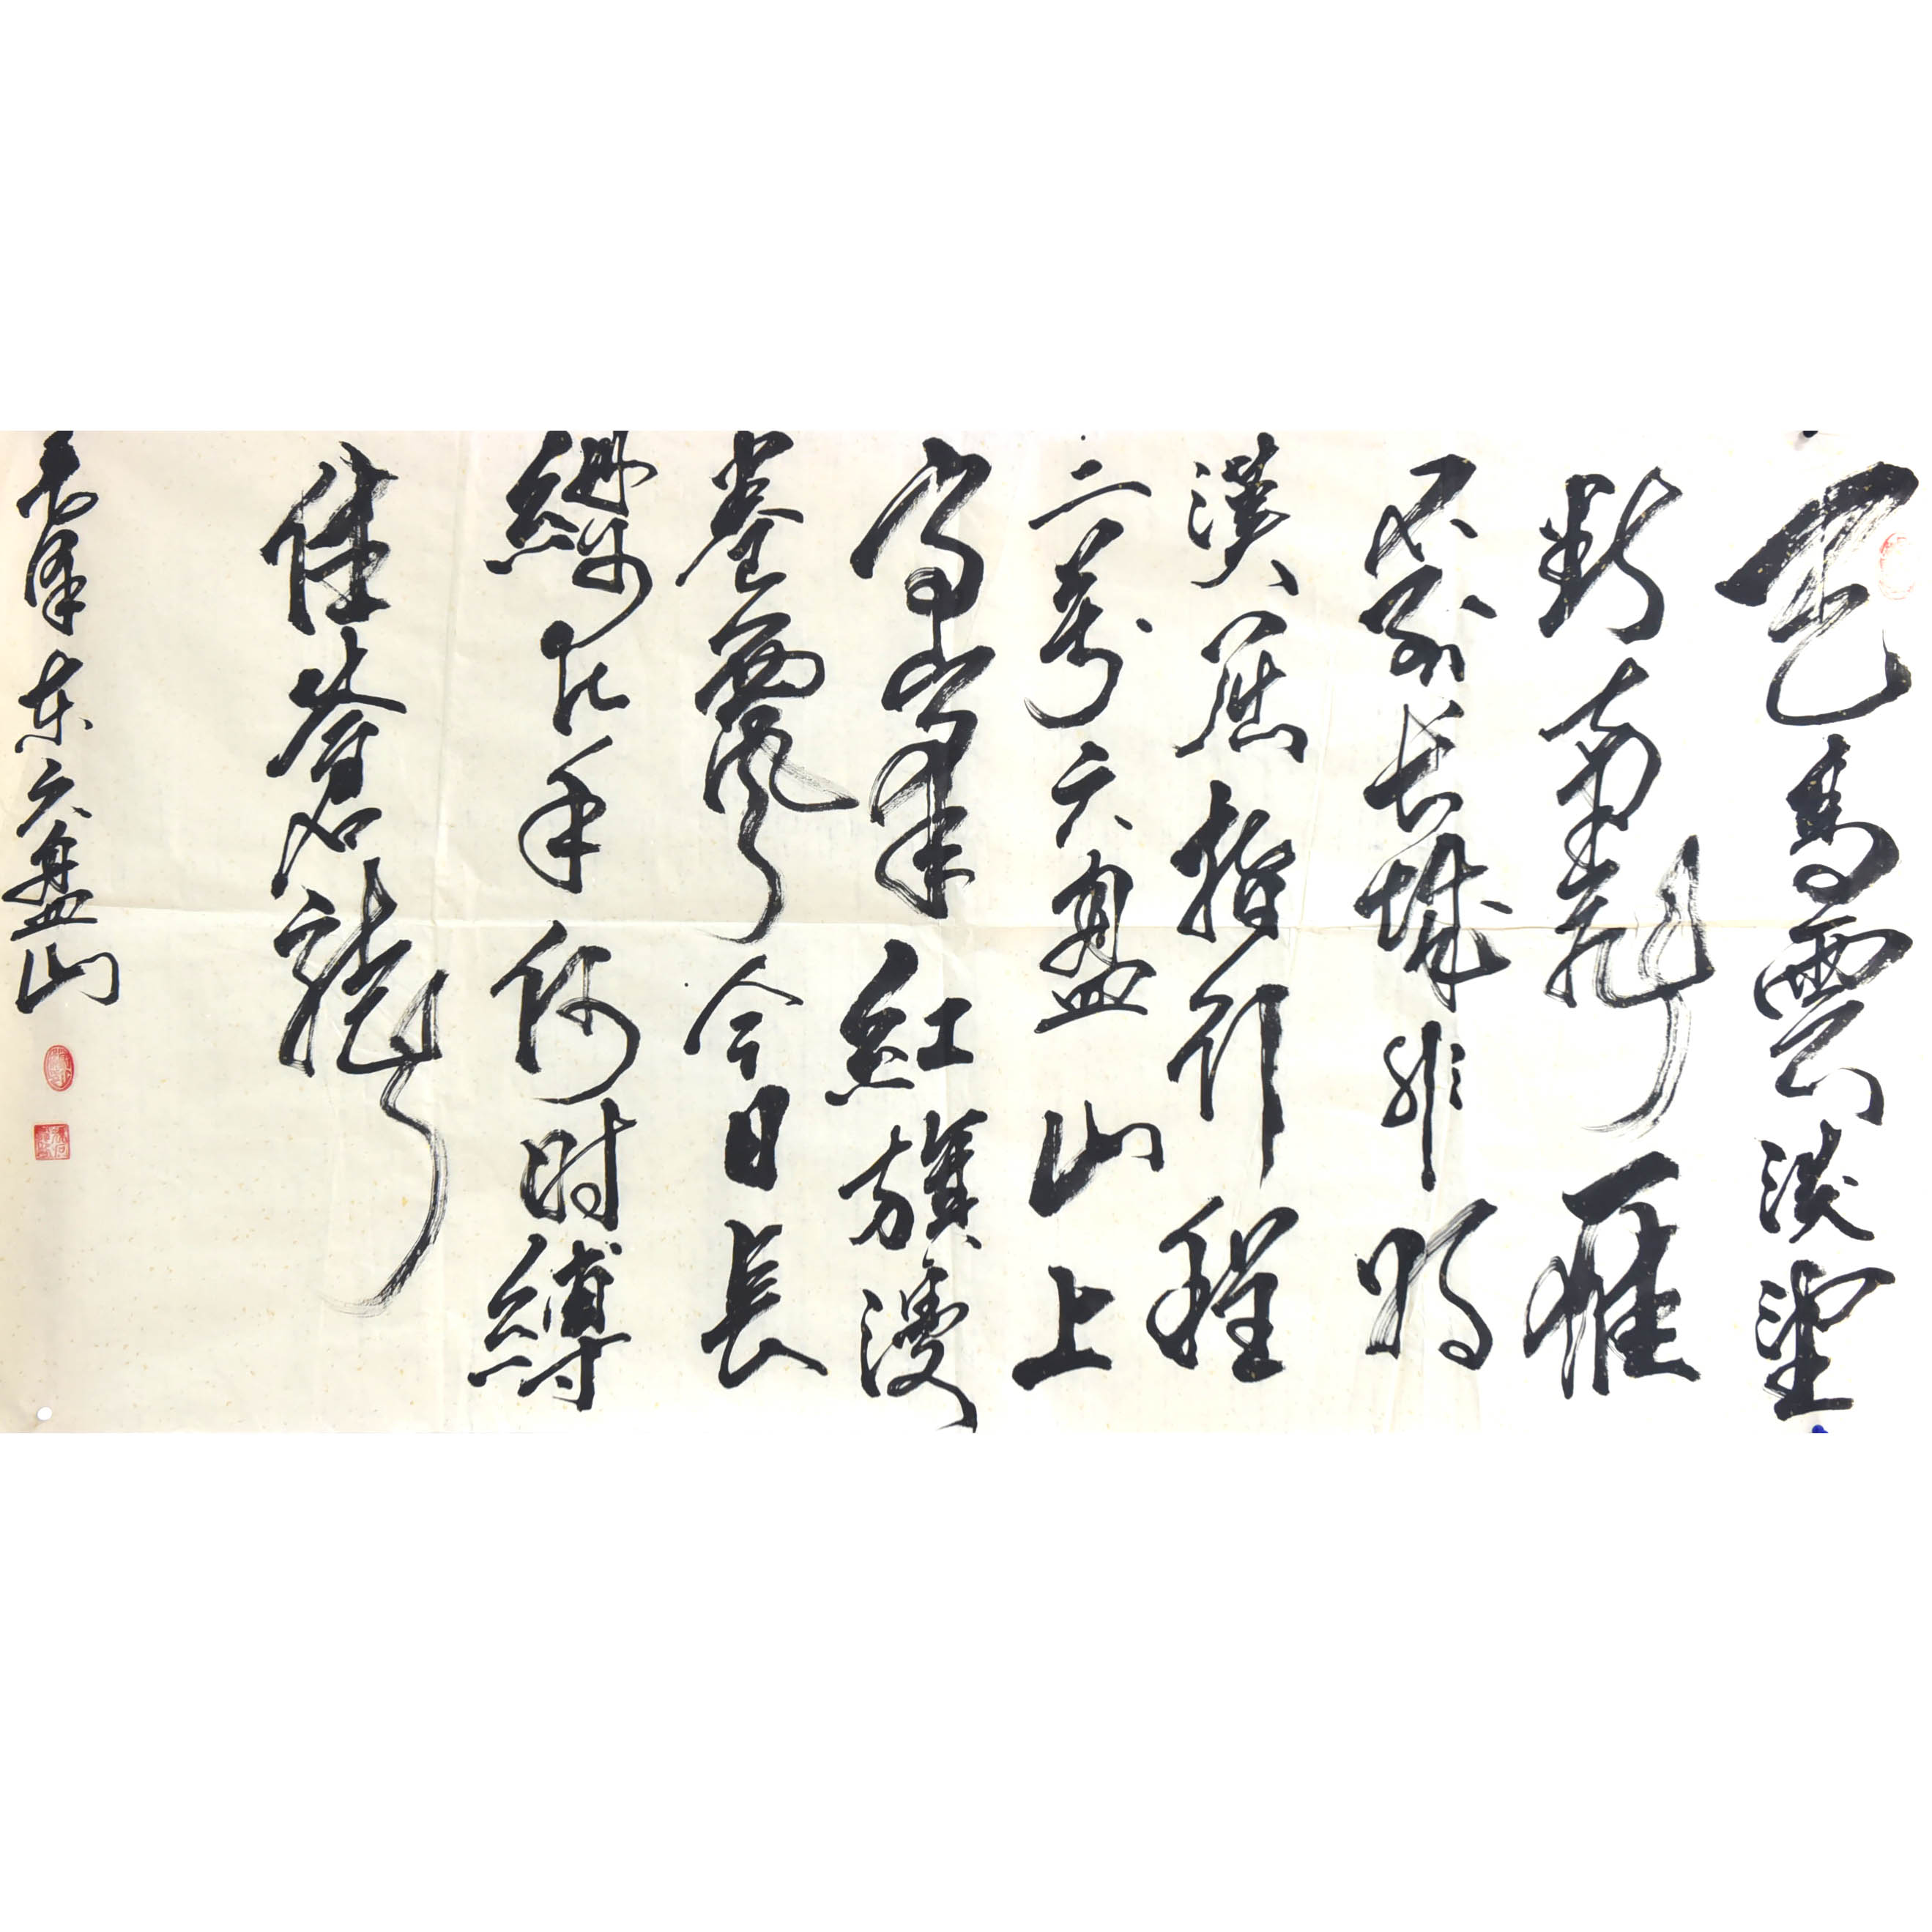 天高雲淡望
斷南飛雁
不到长城非好
漢屈指行程
二萬六盘山上
高峯紅旗漫
卷西風今日長
纓在手何时縛
住蒼龍
毛泽东六盘山